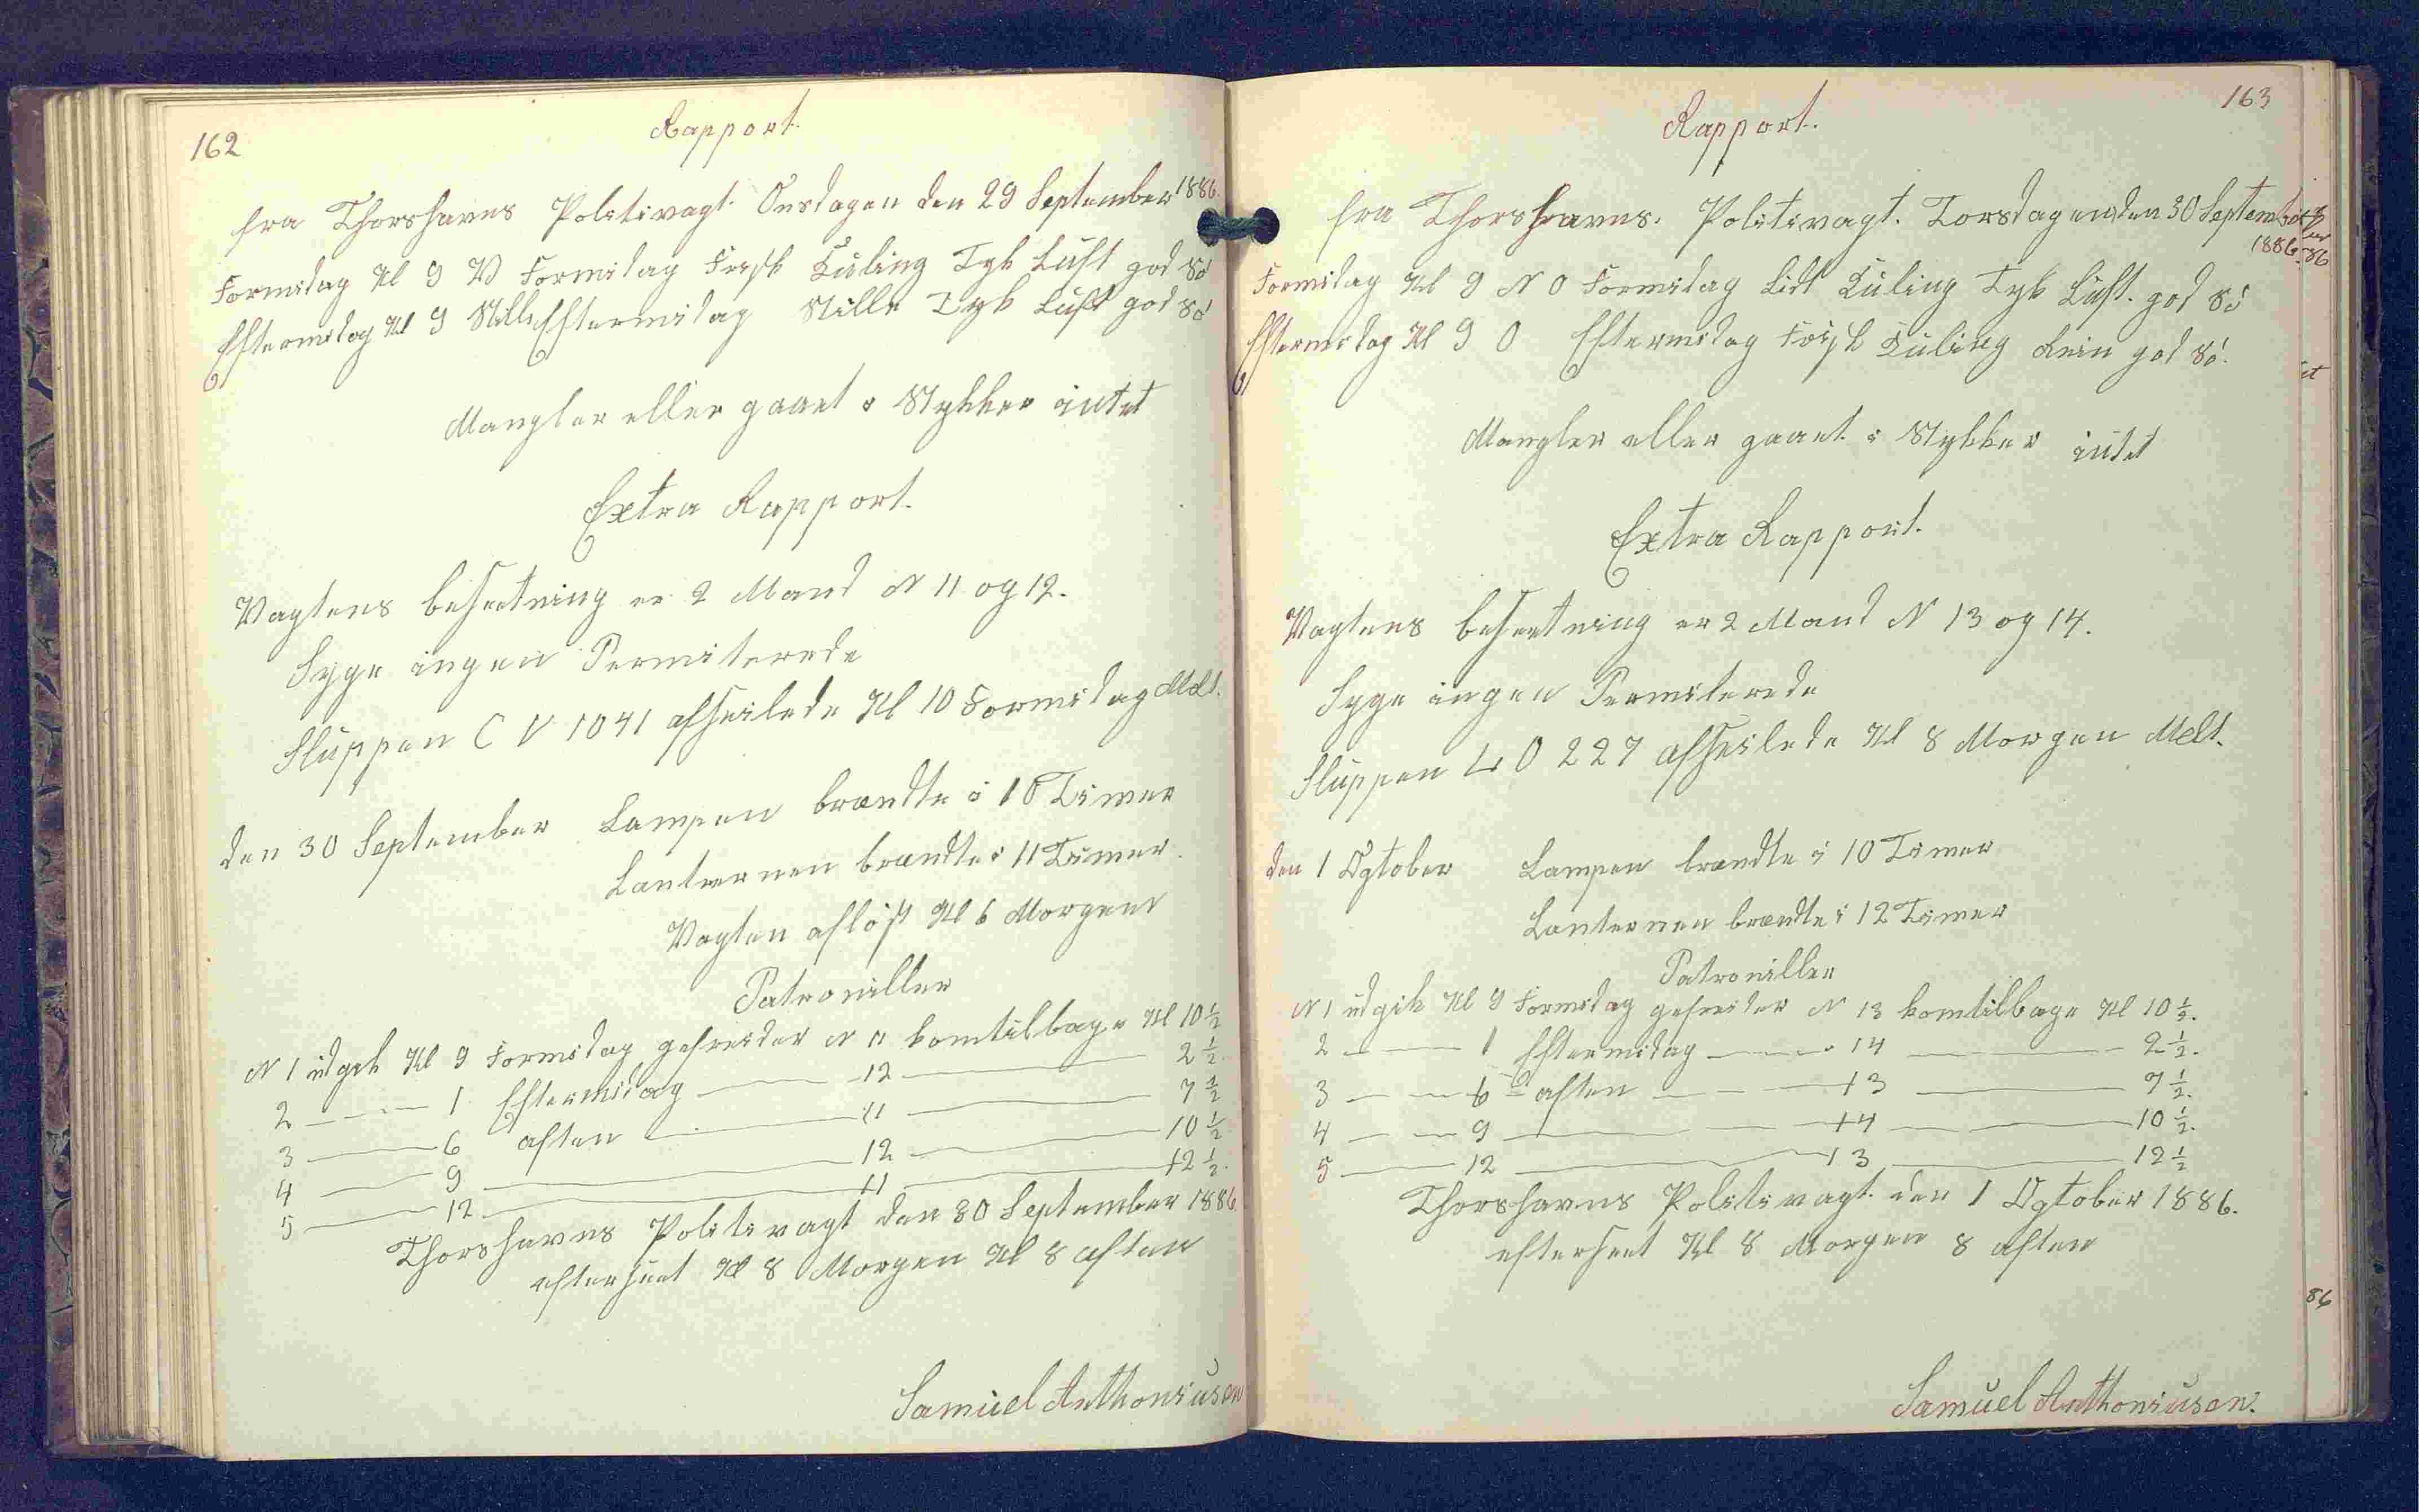 162
Rapport.
fra Thorshavns Politivagt. Onsdagen den 29 September 1886.
Formidag Kl 9 V Formidag Frisk Kuling Tyk Luft god Sö
Eftermidag Kl 9 Stille Eftermidag Stille Tyk Luft god Sö
Mangler eller gaaet i Stykker intet
Extra Rapport.
Vagtens besætning er 2 Mand N 11 og 12.
Syge ingen Permiterede
Sluppen C V 1041 afseilede Kl 10 Formidag Melt.
den 30 September Lampen brændte i 10 Timer
Lanternen brændte i 11 Timer.
Vagten aflöst Kl 6 Morgen
Patrouiller
N 1 udgik Kl 9 Formidag gefreider N 11 kom tilbage Kl 10 ½
2 — — 1 Eftermidag — 12 — 2 ½.
3 — 6 aften — 11 — 7 ½
4 — 9 — 12 — 10 ½
5 — 12 — 11 — 12 ½.
Thorshavns Politivagt den 30 September 1886.
efterseet Kl 8 Morgen Kl 8 aften
Samuel Anthoniusen
163
Rapport.
fra Thorshavns. Politivagt. Torsdagen den 30 September
1886.
Formidag Kl 9 N O Formidag Lidt Kuling Tyk Luft. god Sö
Eftermidag Kl 9 O Eftermidag Frisk Kuling Rein god Sö.
Mangler eller gaaet i Stykker intet
Extra Rapport.
Vagtens besætning er 2 Mand N 13 og 14.
Syge ingen Permiterede
Sluppen L O 227 afseilede Kl 8 Morgen Melt.
den 1 Ogtober Lampen brændte i 10 Timer
Lanternen brændte i 12 Timer
Patrouiller
N 1 udgik Kl 9 Formidag gefreider N 13 kom tilbage Kl 10 ½.
2 — — 1 Eftermidag — 14 — 2 ½.
3 — — 6 — aften — 13 — 7 ½.
4 — — 9 — 14 — 10 ½.
5 — 12 — 13 — 12 ½
Thorshavns Politivagt. den 1 Ogtober 1886.
efterseet Kl 8 Morgen 8 aften
Samuel Anthoniusen.
86